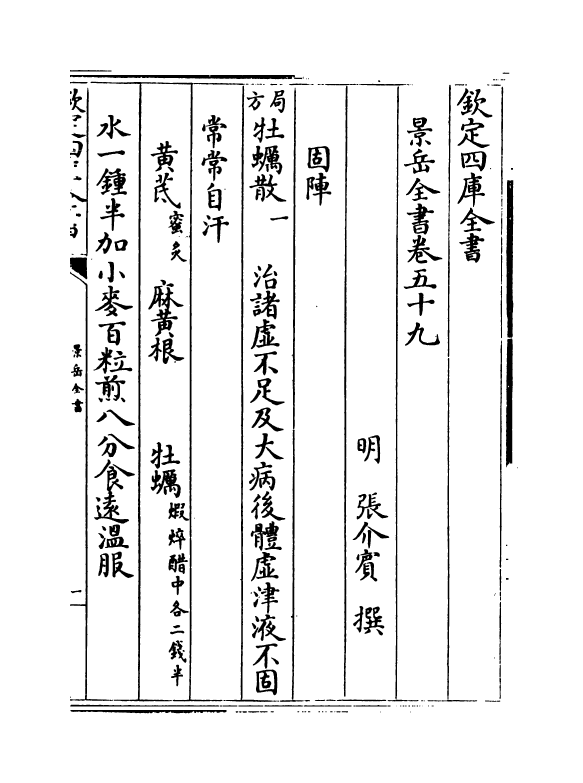 欽定四庫全書
景岳全書卷五十九
明 張介賓 撰
固陣
局方牡蠣散一 治諸虛不足及大病後體虛津液不固
常常自汗
黃芪蜜炙 麻黃根 牡蠣煆焠醋中各二錢半
水一鍾半加小麥百粒煎八分食遠溫服
景岳全書